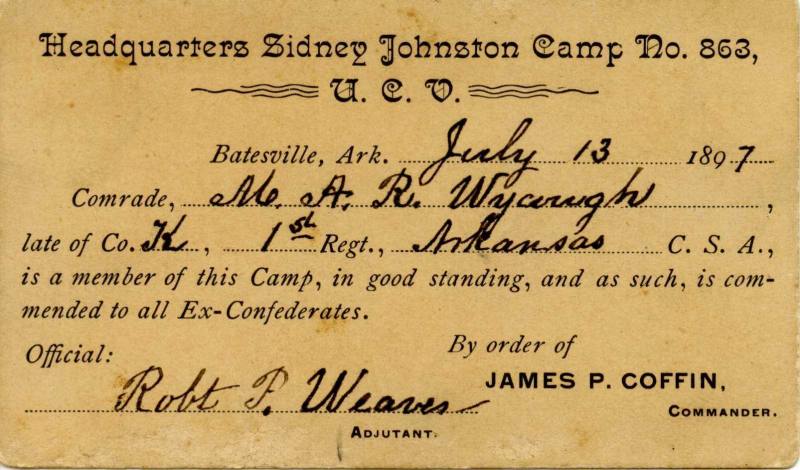 Headquarters Sidney Johnston Camp No. 863,
U. C. V.
Batesville, Ark. July 13 1897
Comrade, M. A. R. Wycough,
late of Co. K, 1st Regt., Arkansas C. S. A.,
is a member of this Camp, in good standing, and as such, is com-
mended to all Ex-Confederates.
Official:
By order of
JAMES P. COFFIN,
COMMANDER.
Robt P. Weaver
ADJUTANT.